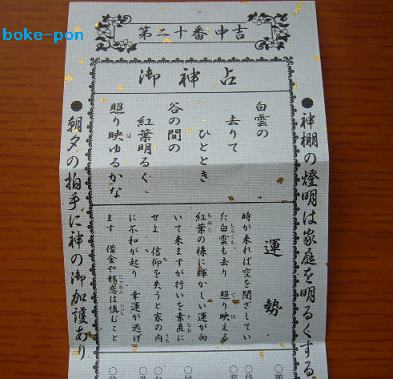 boke-pon
第二十番中吉
御神占
●神棚の燈明は家庭を明るくする
白雲の
去りて
ひととき
谷の間の
紅葉明るく
照り映ゆるかな
運勢
時が来れば空を閉ざしてい
た白雲も去り 照り映える
紅葉の様に輝かしい運が向
いて来ますが行いを素直に
せよ 信仰を失うと家の内
に不和が起り 幸運が逃げ
ます 借金や
は慎むこと
●朝夕の拍手に神の御加護あり